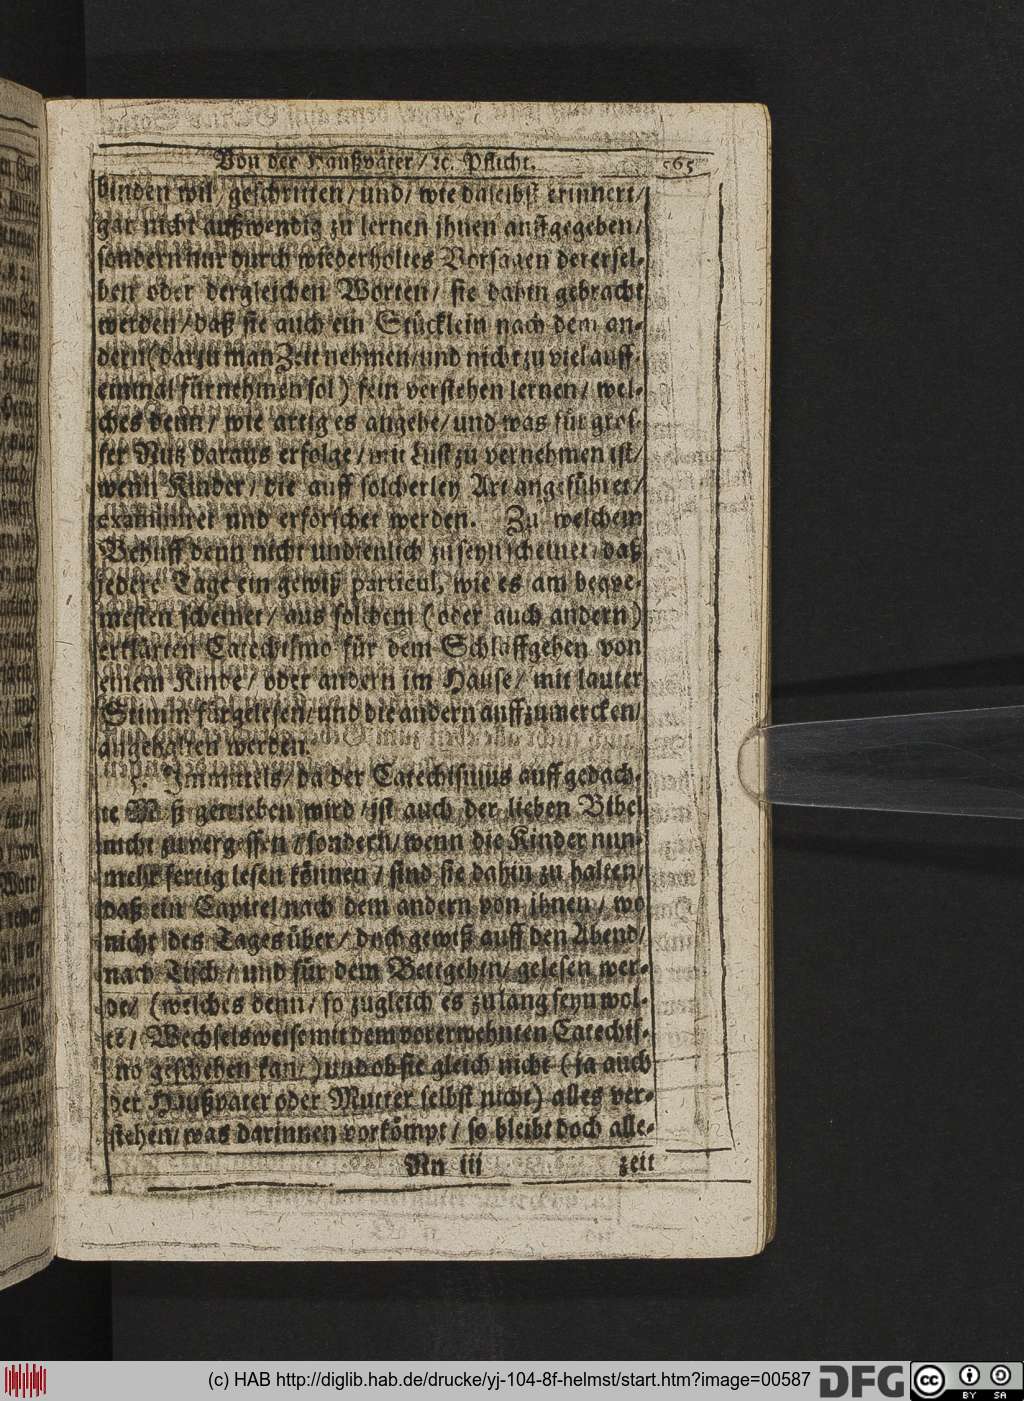 Von der Haußväter / ꝛc. Pflicht. 565
binden wil / geschritten / und / wie daselbst erinnert /
gar nicht außwendig zu lernen ihnen auffgegeben /
sondern nur durch wiederholtes Vorsagen derersel-
ben oder dergleichen Worten / sie dahin gebracht
werden / daß sie auch ein Stücklein nach dem an-
dern (darzu man Zeit nehmen / und nicht zu viel auff
einmal fürnehmen sol) fein verstehen lernen / wel-
ches denn / wie artig es angehe / und was für gros-
ser Nutz daraus erfolge / mit Lust zu vernehmen ist /
wenn Kinder / die auff solcherley Art angeführet /
examiniret und erforschet werden. Zu welchem
Behuff denn nicht undienlich zu seyn scheinet / daß
jedere Tage ein gewiß particul, wie es am beqve-
mesten scheinet / aus solchem (oder auch andern)
erklärten Catechismo für dem Schlaffgehen von
einem Kinde / oder andern im Hause / mit lauter
Stimm fürgelesen / und die andern auffzumercken /
angehalten werden.
Immittels / da der Catechismus auff gedach-
te Maß getrieben wird / ist auch der lieben Bibel
nicht zu vergessen / sondern / wenn die Kinder nun-
mehr fertig lesen können / sind sie dahin zu halten /
daß ein Capitel nach dem andern von ihnen / wo
nicht des Tages über / doch gewiß auff den Abend /
nach Tisch / und für dem Bettgehen / gelesen wer-
de / (welches denn / so zugleich es zu lang seyn wol-
te / Wechselsweise mit dem vorerwehnten Catechis-
mo geschehen kan /) und ob sie gleich nicht (ja auch
der Haußvater oder Mutter selbst nicht) alles ver-
stehen / was darinnen vorkömpt / so bleibt doch alle-
Nn iij zeit
(c) HAB http://diglib.hab.de/drucke/yj-104-8f-helmst/start.htm?image=00587
DFG
cc BY SA